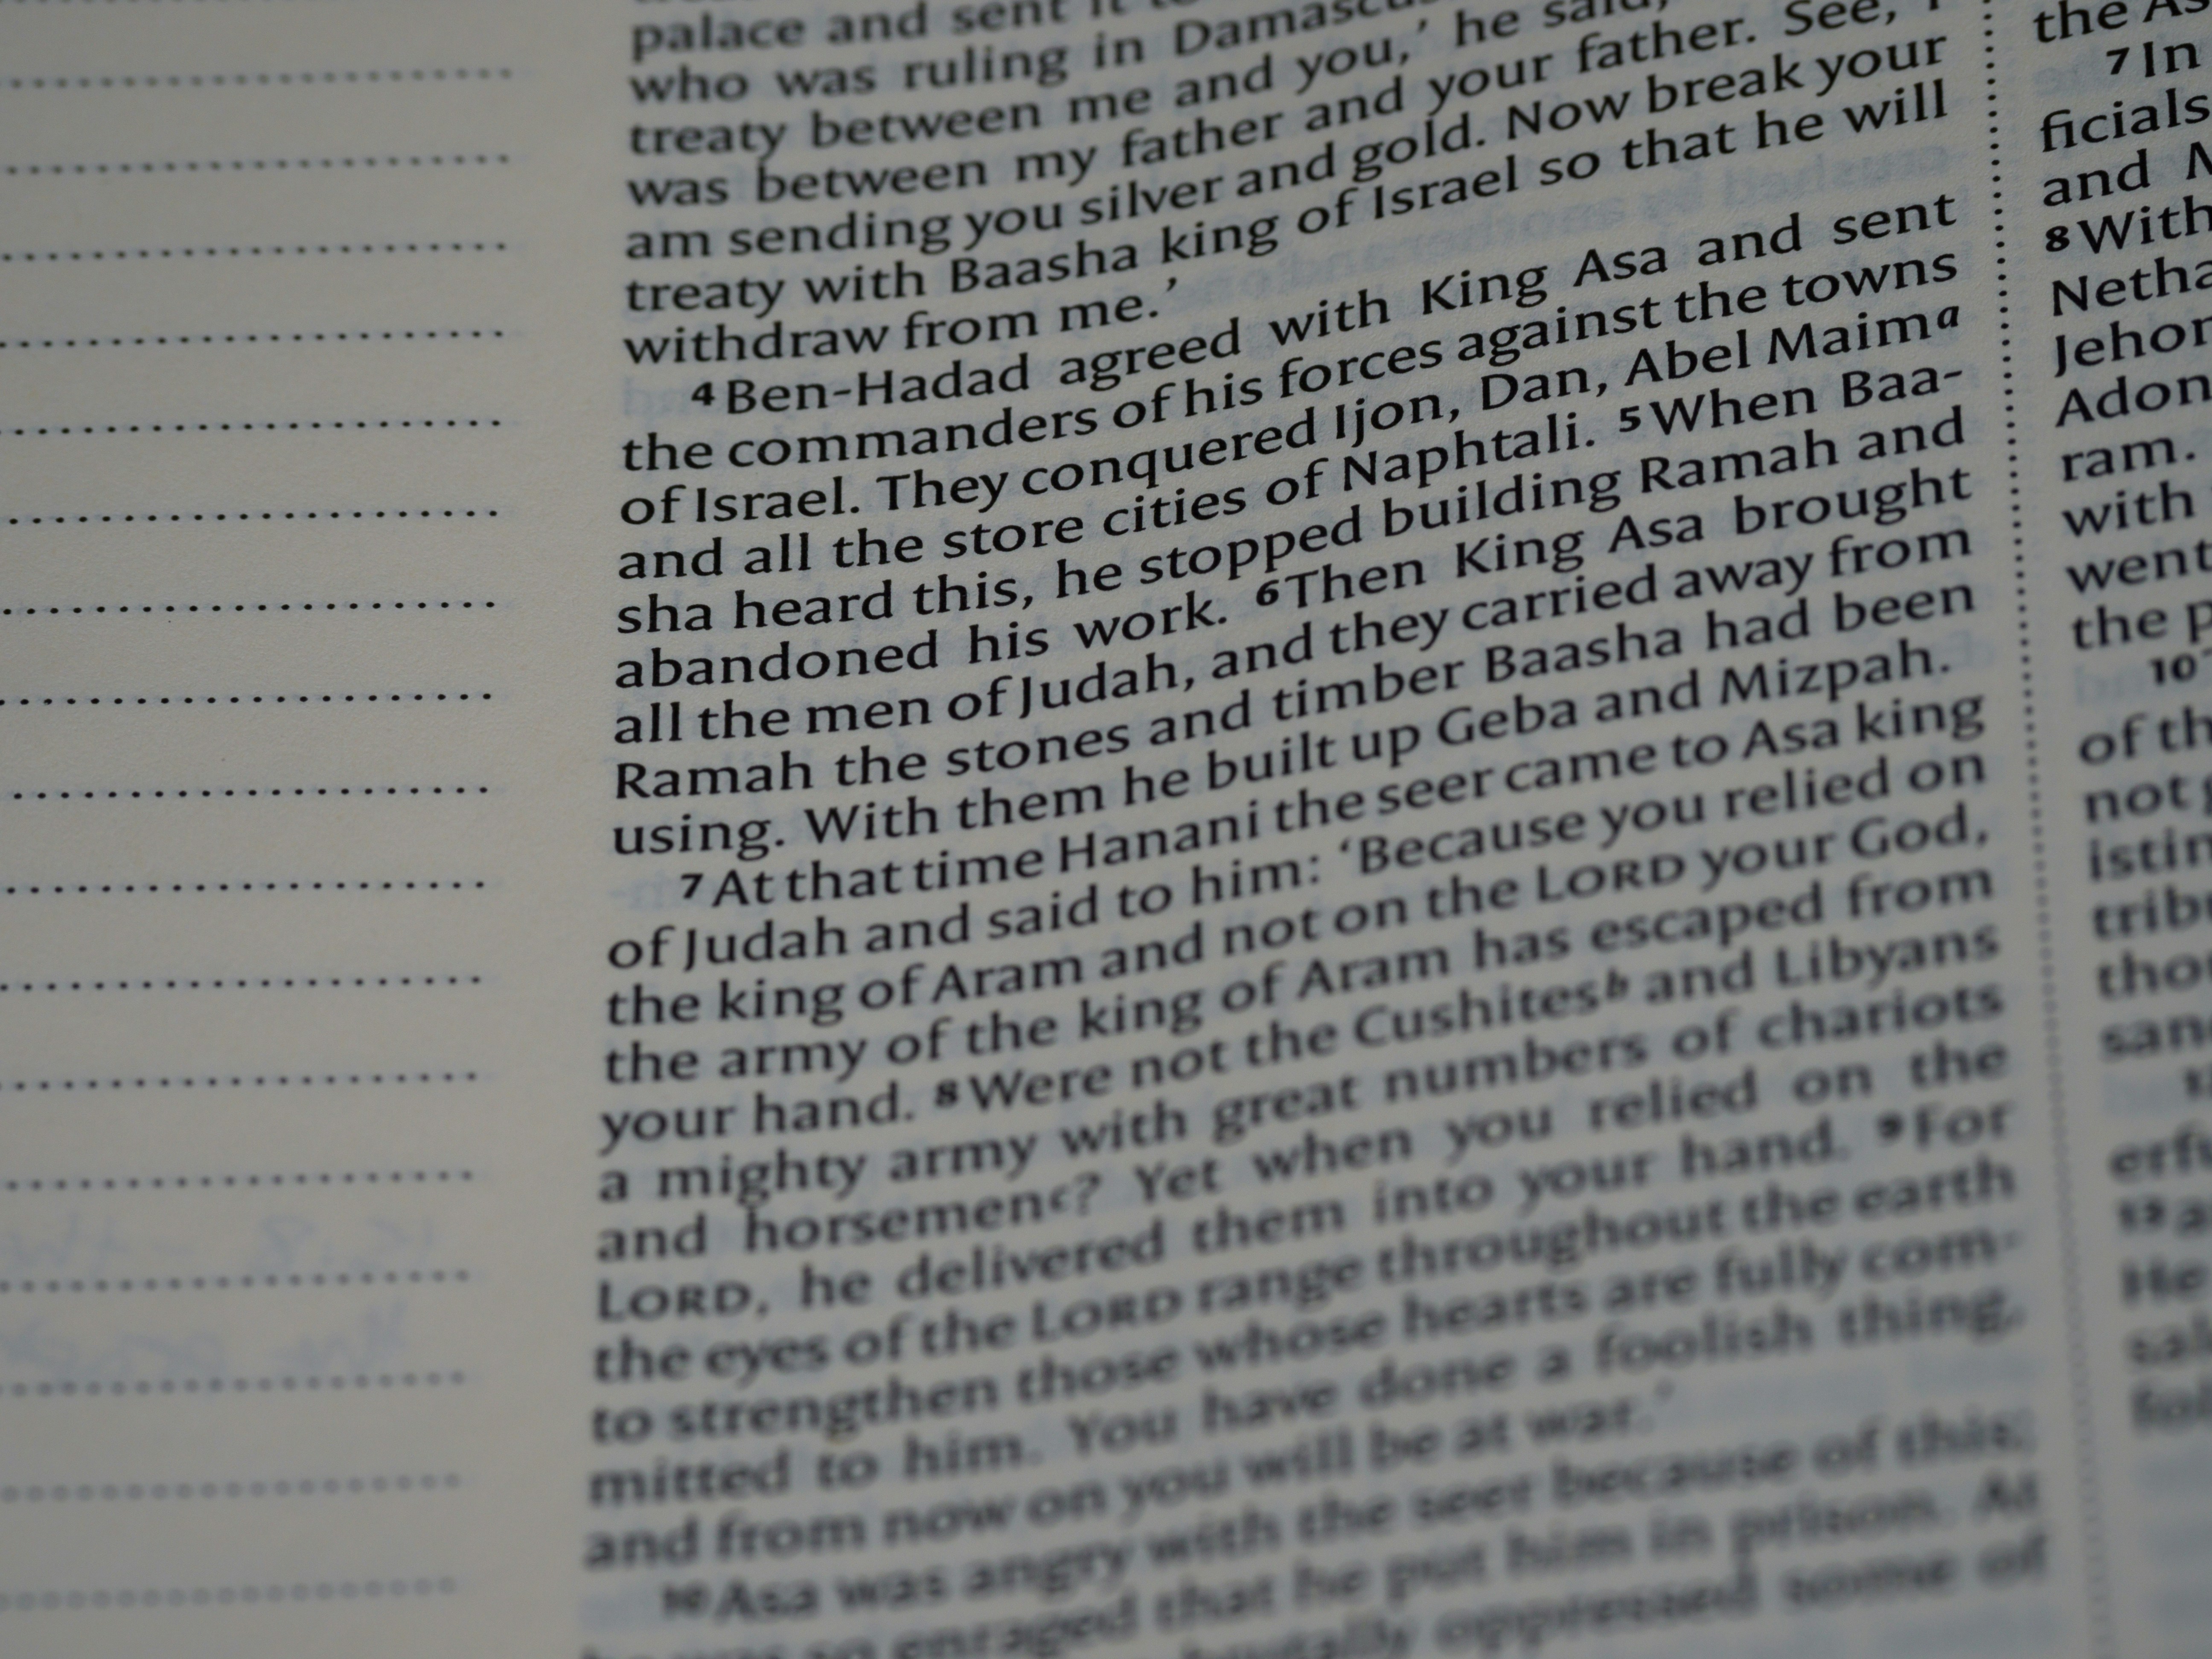 palace and sent it
who was ruling in Damascus
treaty between me and you,’ he said,
was between my father and your father. See, I
am sending you silver and gold. Now break your
treaty with Baasha king of Israel so that he will
withdraw from me.’
4 Ben-Hadad agreed with King Asa and sent
the commanders of his forces against the towns
of Israel. They conquered Ijon, Dan, Abel Maim a
and all the store cities of Naphtali. 5 When Baa-
sha heard this, he stopped building Ramah and
abandoned his work. 6 Then King Asa brought
all the men of Judah, and they carried away from
Ramah the stones and timber Baasha had been
using. With them he built up Geba and Mizpah.
7 At that time Hanani the seer came to Asa king
of Judah and said to him: ‘Because you relied on
the king of Aram and not on the LORD your God,
the army of the king of Aram has escaped from
your hand. 8 Were not the Cushites b and Libyans
a mighty army with great numbers of chariots
and horsemen c? Yet when you relied on the
LORD, he delivered them into your hand. 9 For
the eyes of the LORD range throughout the earth
to strengthen those whose hearts are fully com-
mitted to him. You have done a foolish thing,
and from now on you will be at war.’
10 Asa was angry with the seer because of this;
he was so enraged that he put him in prison. At
brutally oppressed some of
the As
7 In
ficials
and M
8 With
Netha
Jehor
Adon
ram.
with
went
the p
10
of th
not g
istin
tribu
thou
san
11
erfu
12 a
He